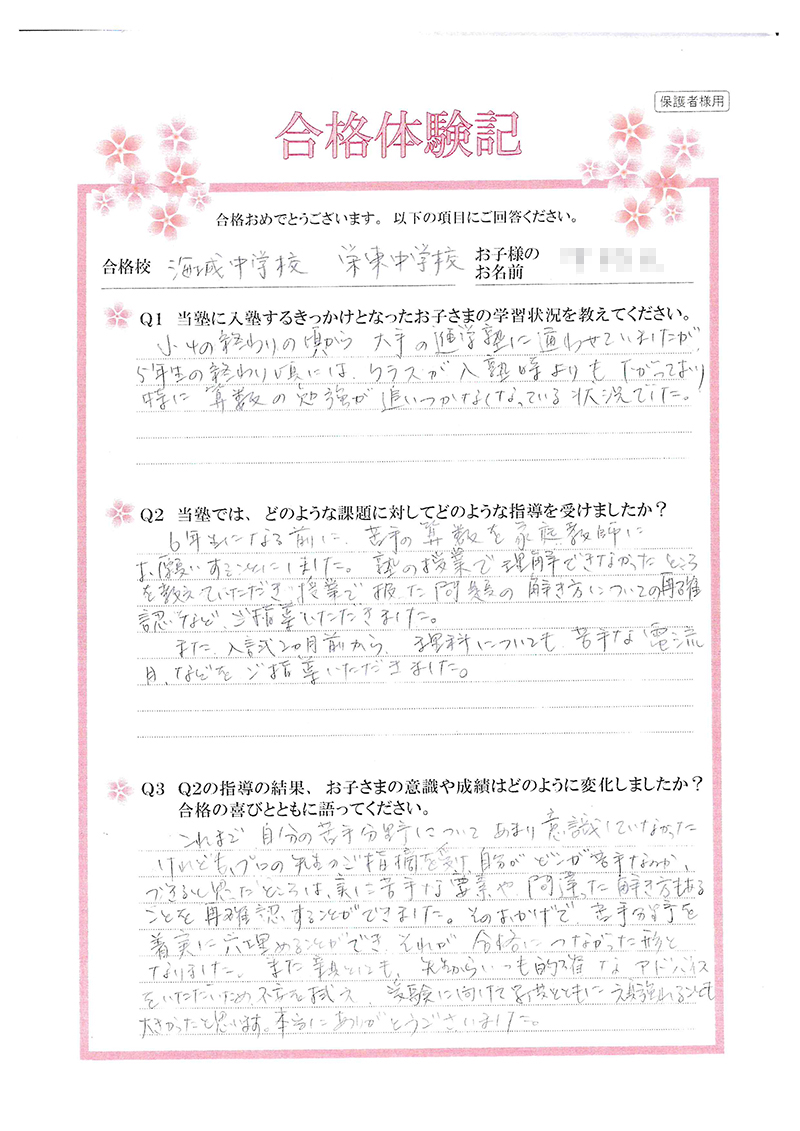 保護者様用
合格体験記
合格おめでとうございます。以下の項目にご回答ください。
合格校 海城中学校 栄東中学校 お子様の
お名前
Q1 当塾に入塾するきっかけとなったお子さまの学習状況を教えてください。
小4の終わりの頃から 大手の進学塾に通わせていましたが
5年生の終わり頃には、クラスが入塾時よりも下がっており
特に算数の勉強が追いつかなくなっている状況でした。
Q2 当塾では、どのような課題に対してどのような指導を受けましたか？
6年生になる前に、苦手の算数を家庭教師に
お願いすることにしました。塾の授業で理解できなかったところ
を教えていただき 授業で扱った問題の解き方についての再確
認など、ご指導いただきました。
また、入試2ヵ月前から、理科についても、苦手な電流
月、などをご指導いただきました。
Q3 Q2の指導の結果、お子さまの意識や成績はどのように変化しましたか？
合格の喜びとともに語ってください。
これまで 自分の苦手分野について あまり意識していなかった
けれども、プロの先生のご指摘を受け 自分がどこが苦手なのか、
できると思ったところは、実に苦手な や 問 った解き方もある
ことを再確認することができました。そのおかげで 苦手分野を
着実に穴埋めることができ、それが 合格につながった形と
なりました。また親としても、先生からいつも的確なアドバイス
をいただいため不安を拭え、受験に向けて子供とともに 強れることも
大きかったと思います。本当にありがとうございました。